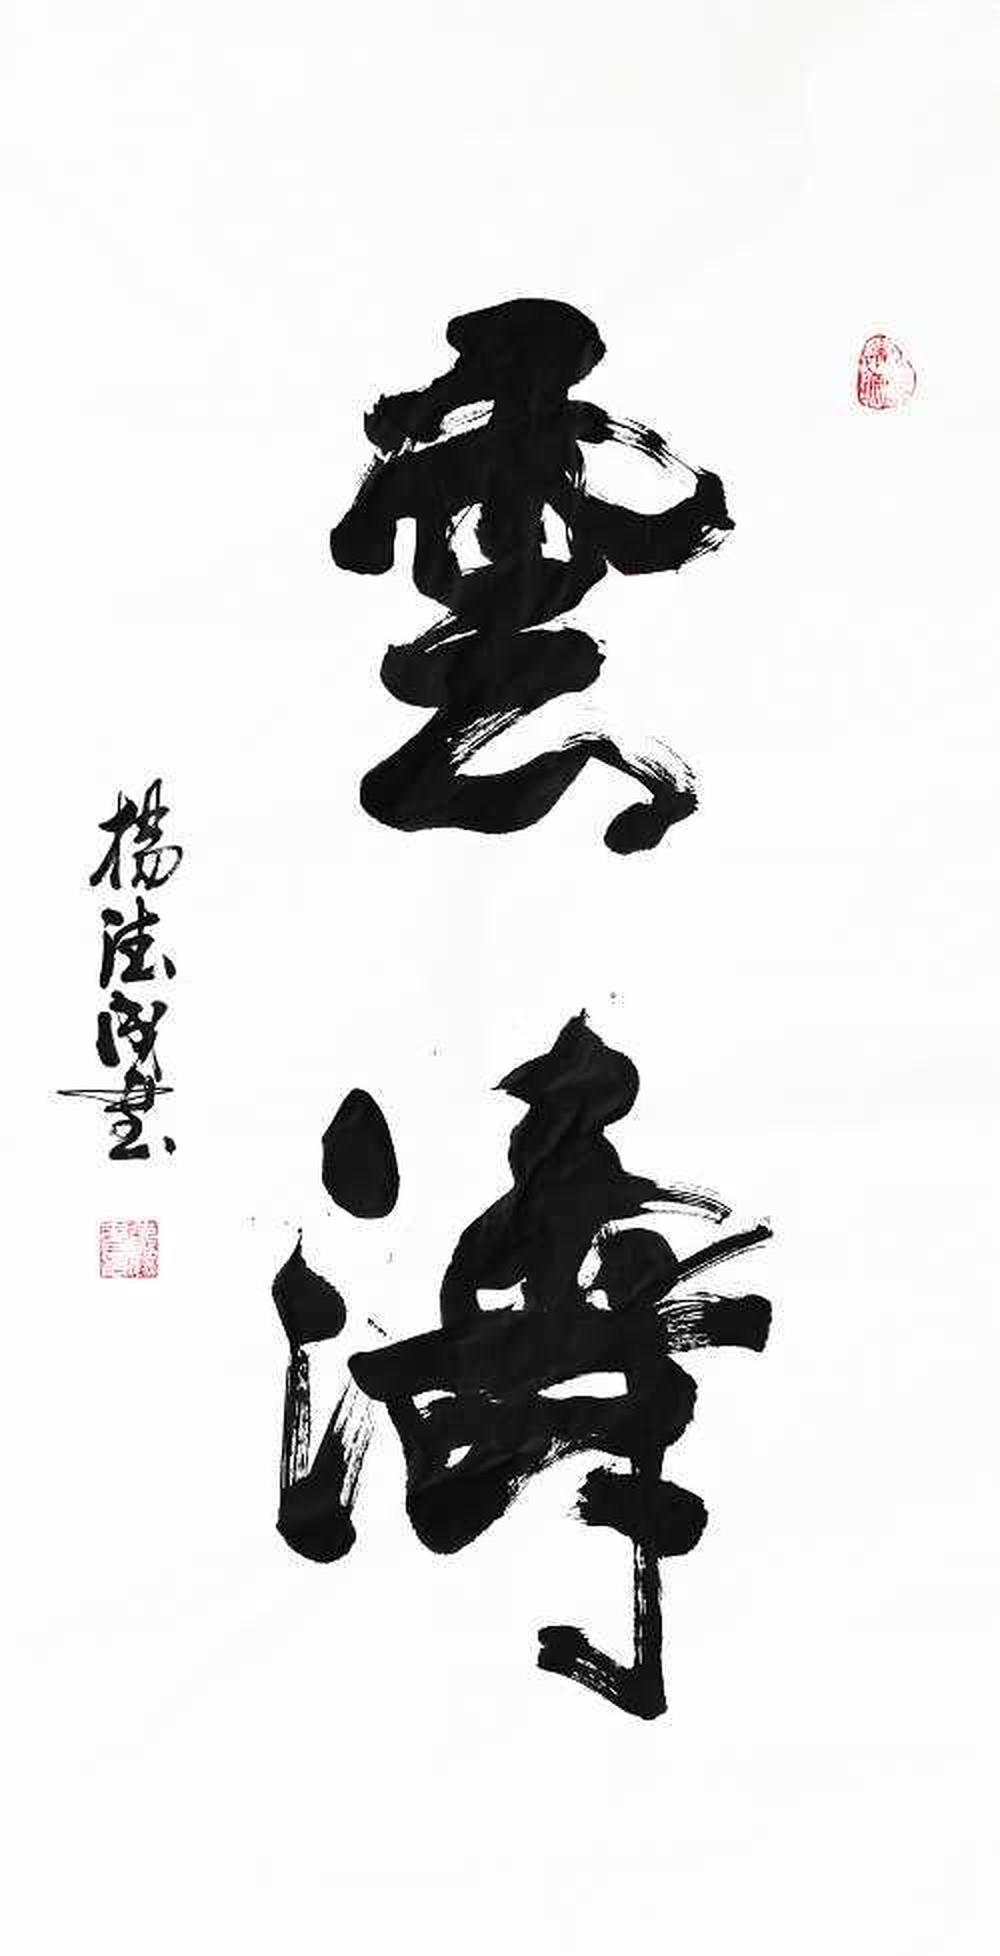 雲濤
楊德成書